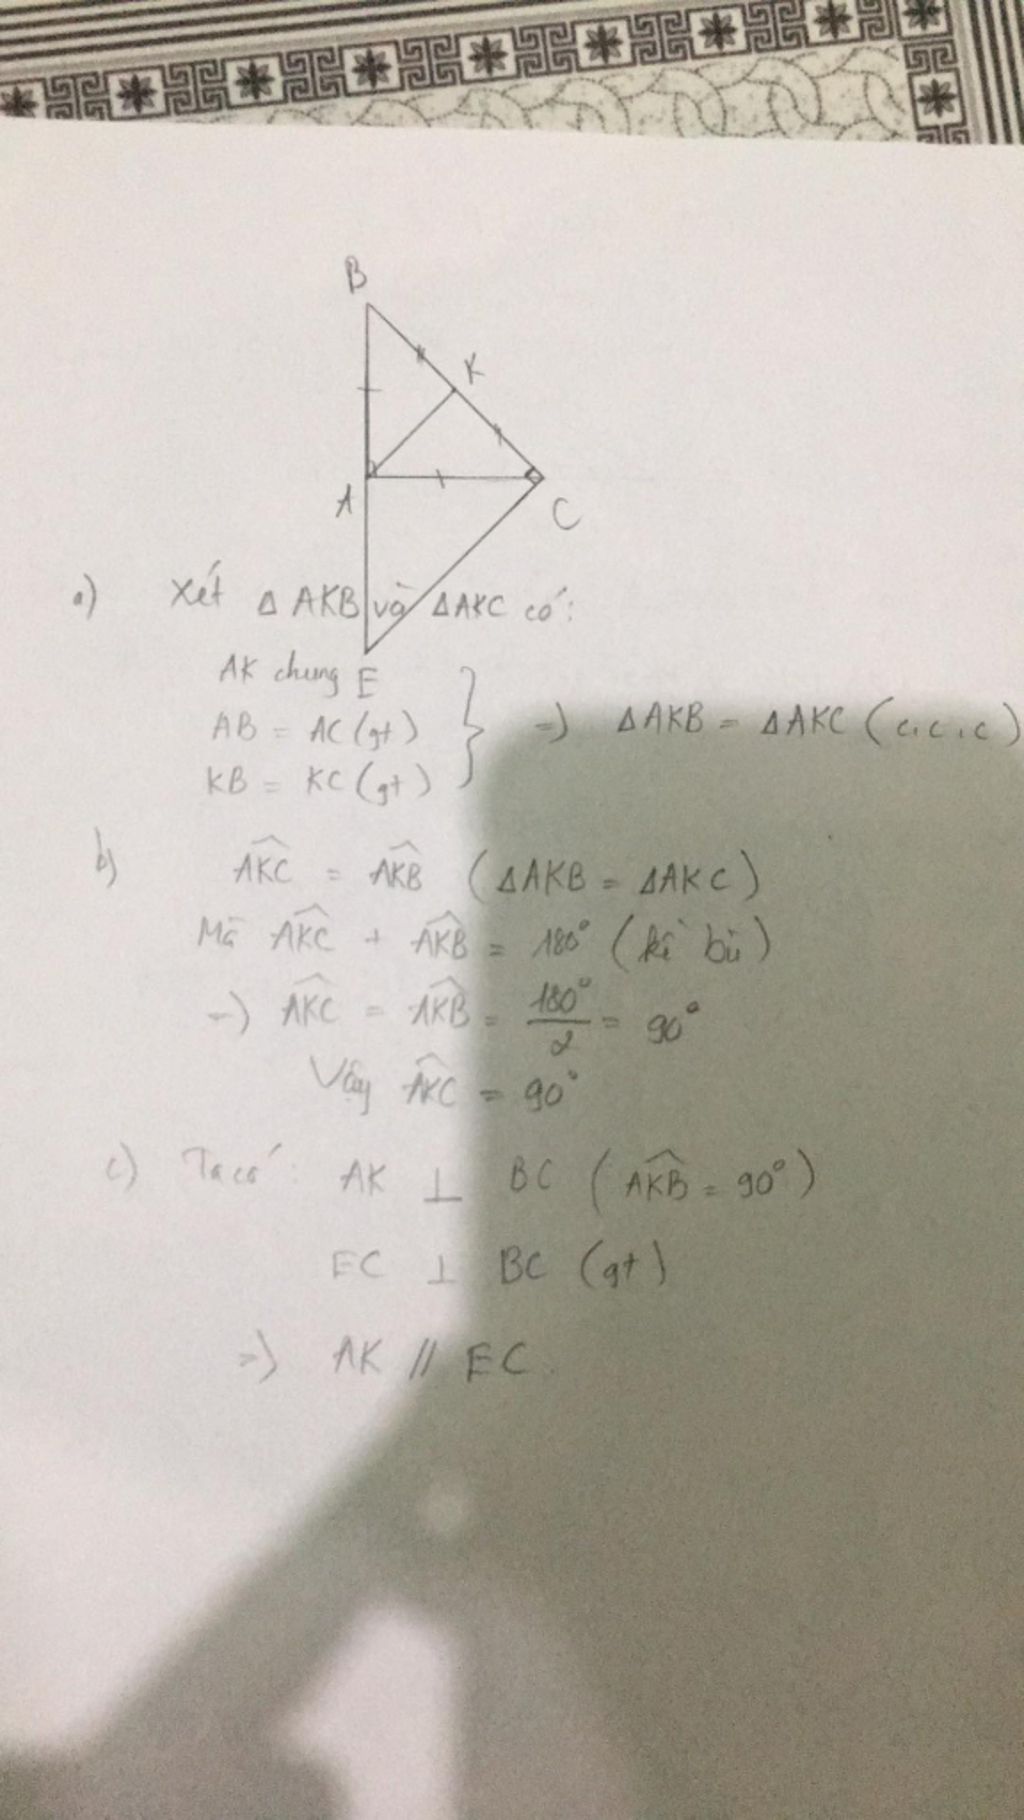 B
K
A
C
a) Xét Δ AKB và ΔAKC có:
AK chung E
AB = AC (gt)
KB = KC (gt)
=) ΔAKB = ΔAKC (c.c.c)
b) AKC = AKB (ΔAKB = ΔAKC)
Mà AKC + AKB = 180° (kề bù)
=) AKC = AKB = 180°/2 = 90°
Vậy AKC = 90°
c) Ta có: AK ⊥ BC (AKB = 90°)
EC ⊥ BC (gt)
=) AK // EC.